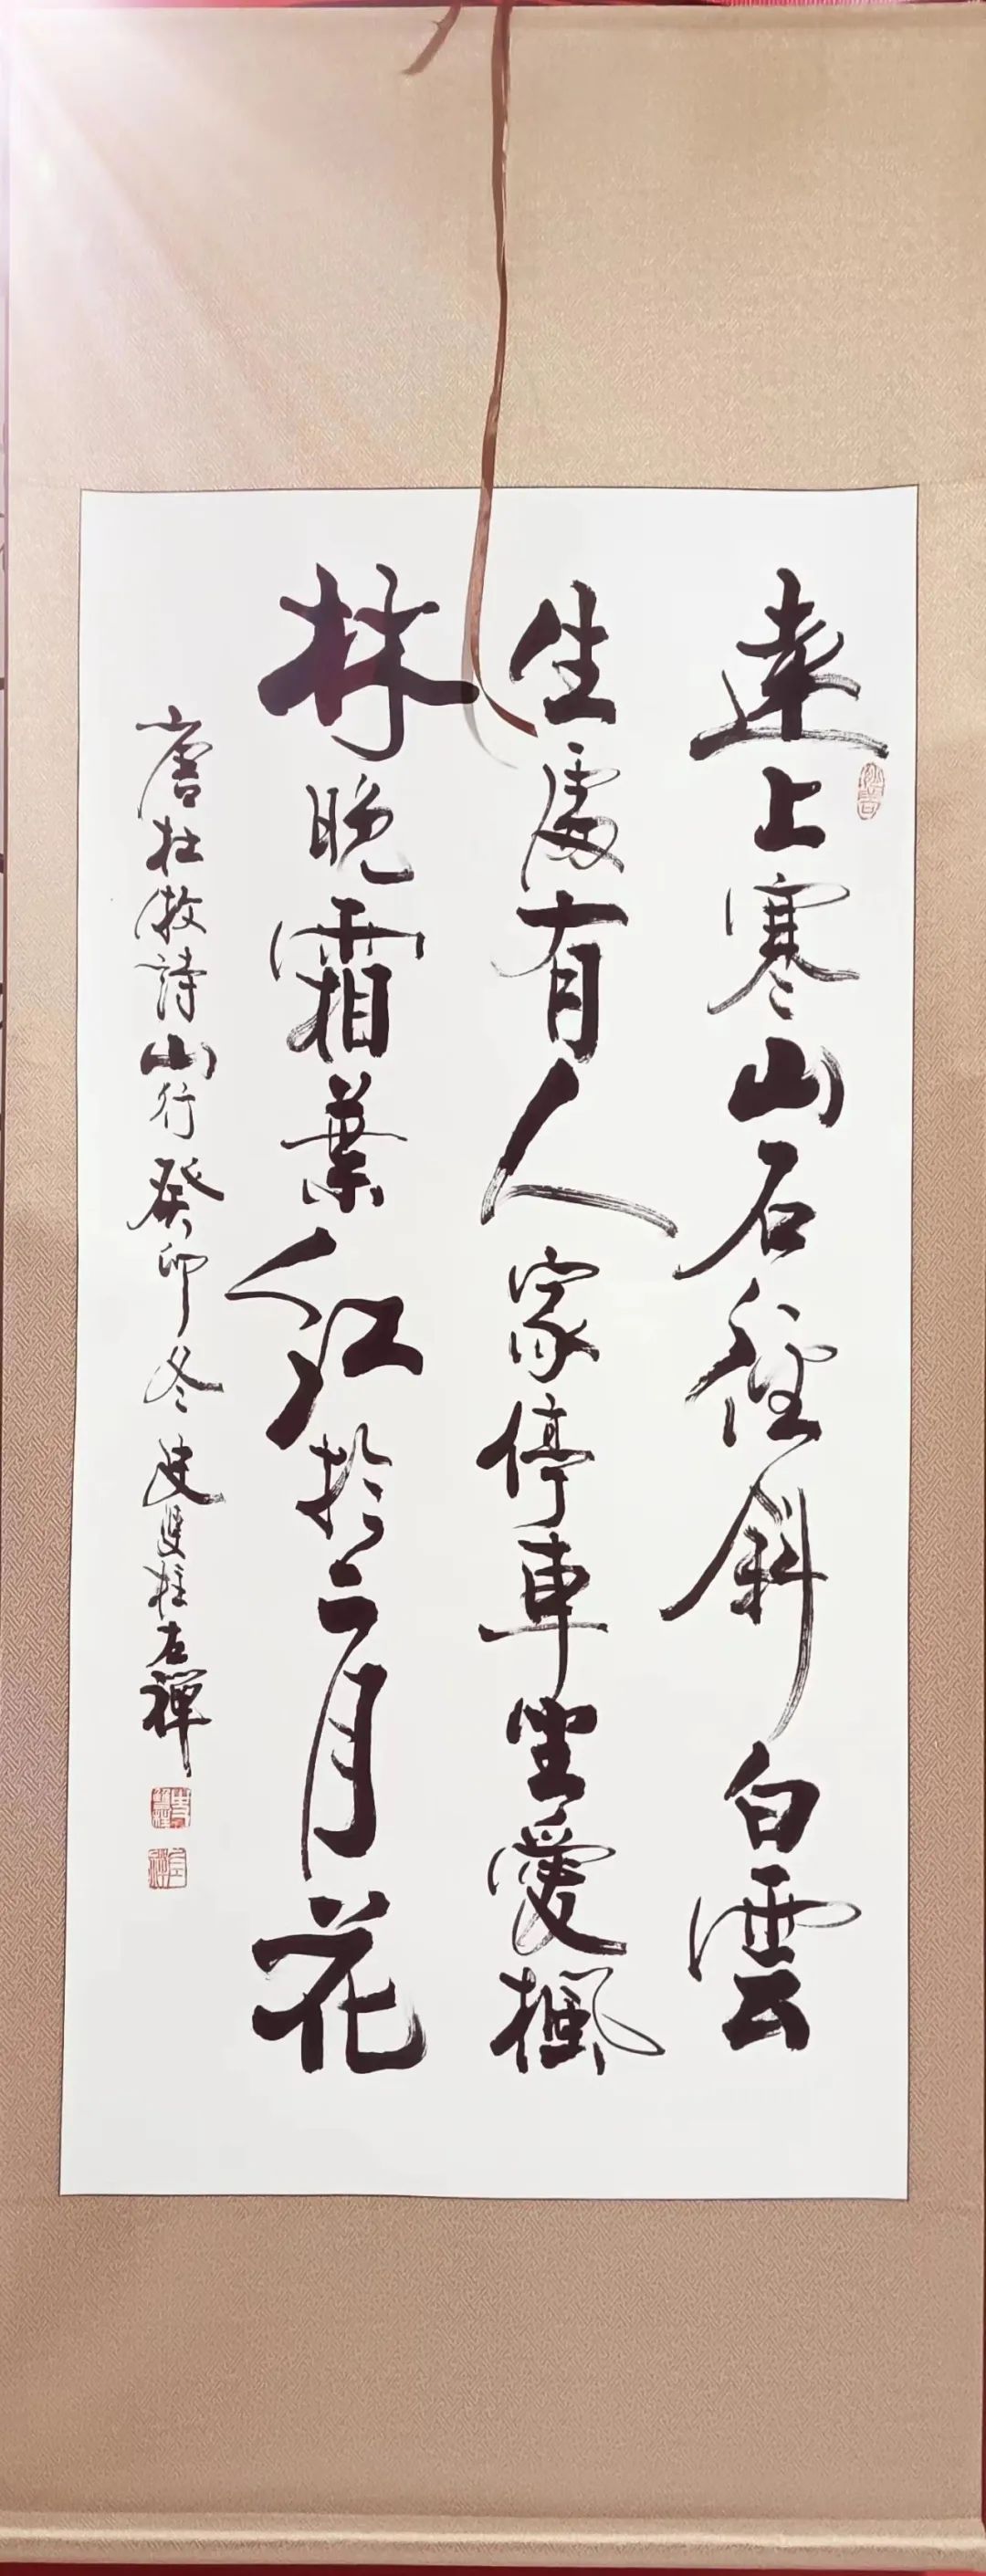 遠上寒山石徑斜白雲
生處有人家停車坐愛楓
林晚霜葉紅於二月花
唐杜牧詩山行癸卯冬史雙柱左禪